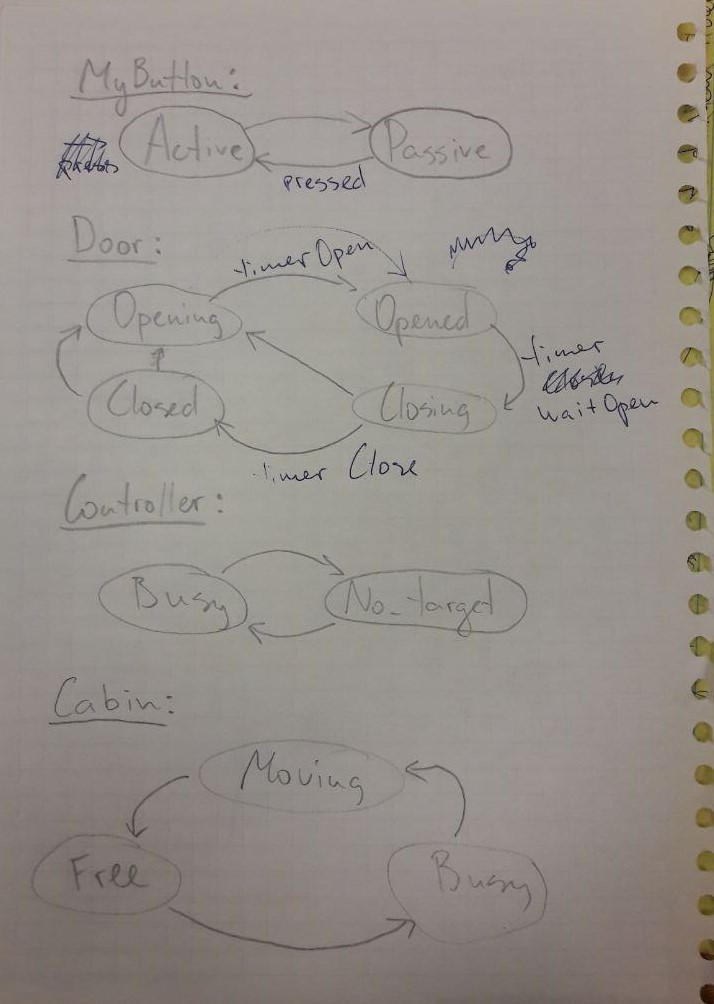 MyButton:
Active Passive
pressed
Door:
timer Open
Opening Opened
timer
waitOpen
Closed Closing
timer Close
Controller:
Busy No_target
Cabin:
Moving
Free Busy